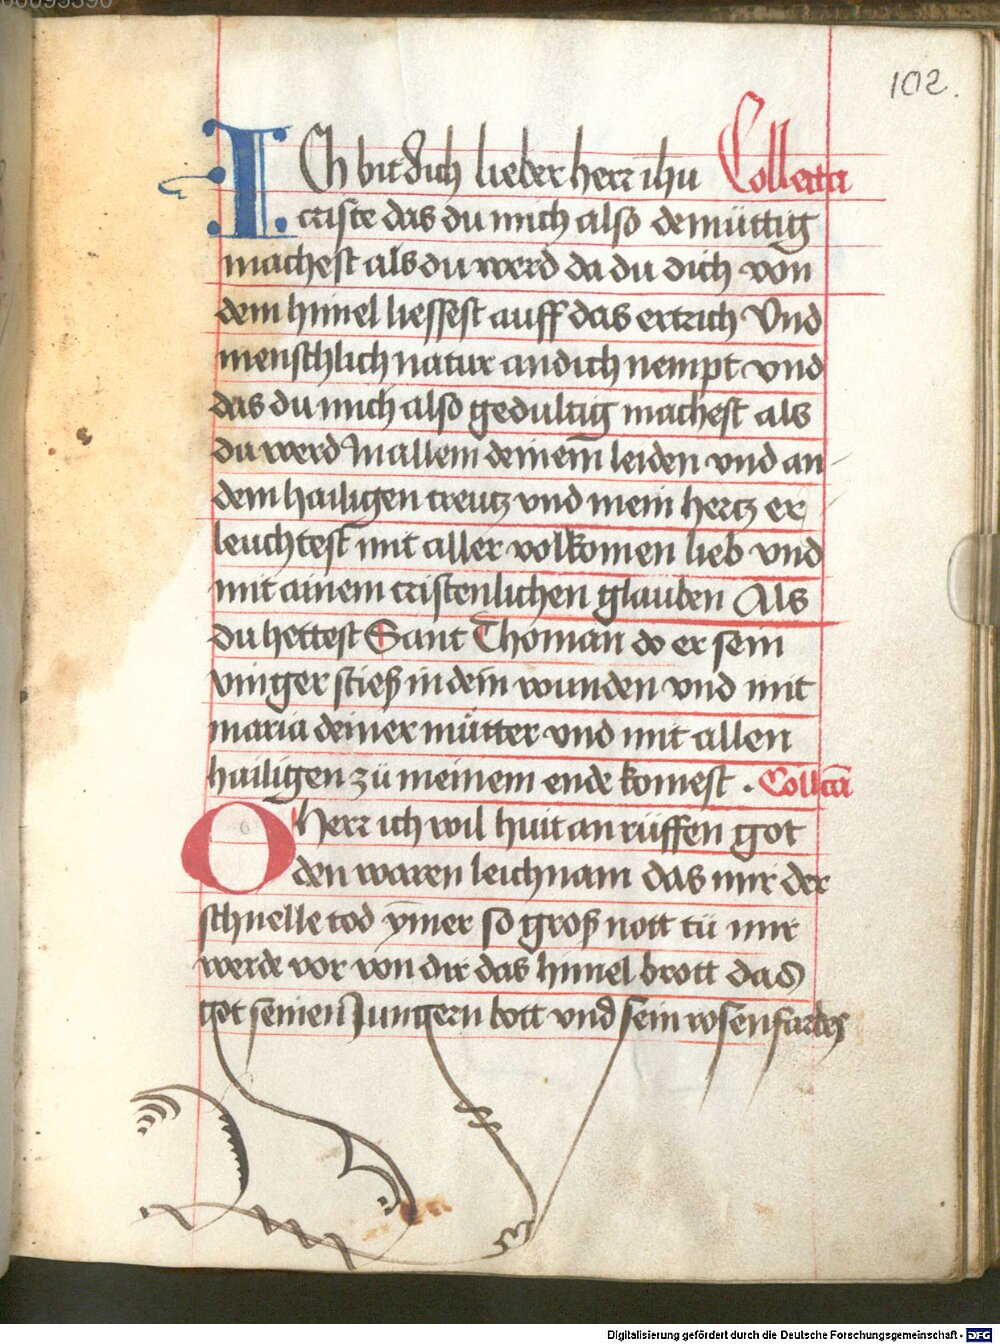 102.
ICh bit dich lieber herr ihu Collecta
criste das du mich also demüttig
machest als du werd da du dich von
dem himel liessest auff das ertrich Vnd
menschlich natur an dich nempt vnd
das du mich also gedultig machest als
du werd In allem deinem leiden vnd an
dem hailigen creutz vnd mein hertz er
leuchtest mit aller volkomen lieb vnd
mit ainem cristenlichen glauben Als
du hettest Sant Thoman do er sein
vinger stieß in dein wunden vnd mit
maria deiner mütter vnd mit allen
hailigen zü meinem ende komest . Collcta
O herr ich wil huit an rüffen got
den waren leichnam das mir der
schnelle tod ymer so groß nott tü mir
werde vor von dir das himel brott das
got seinen Jungern bott vnd sein rosenfarbes
Digitalisierung gefördert durch die Deutsche Forschungsgemeinschaft - DFG